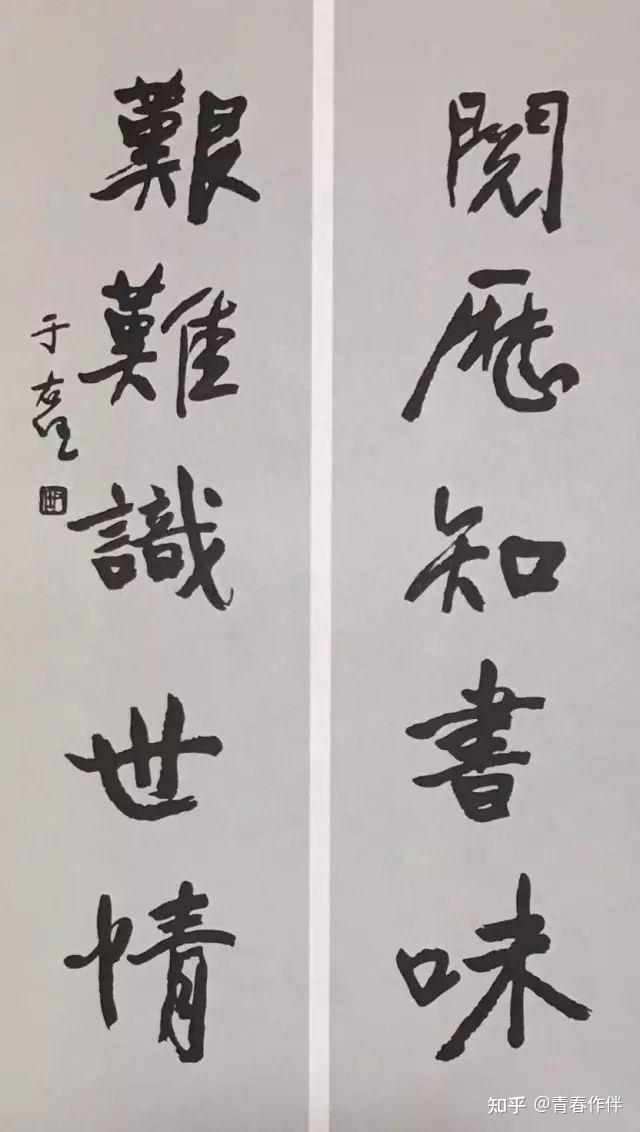 閱歷知書味
艱難識世情
于右任
知乎 @青春作伴